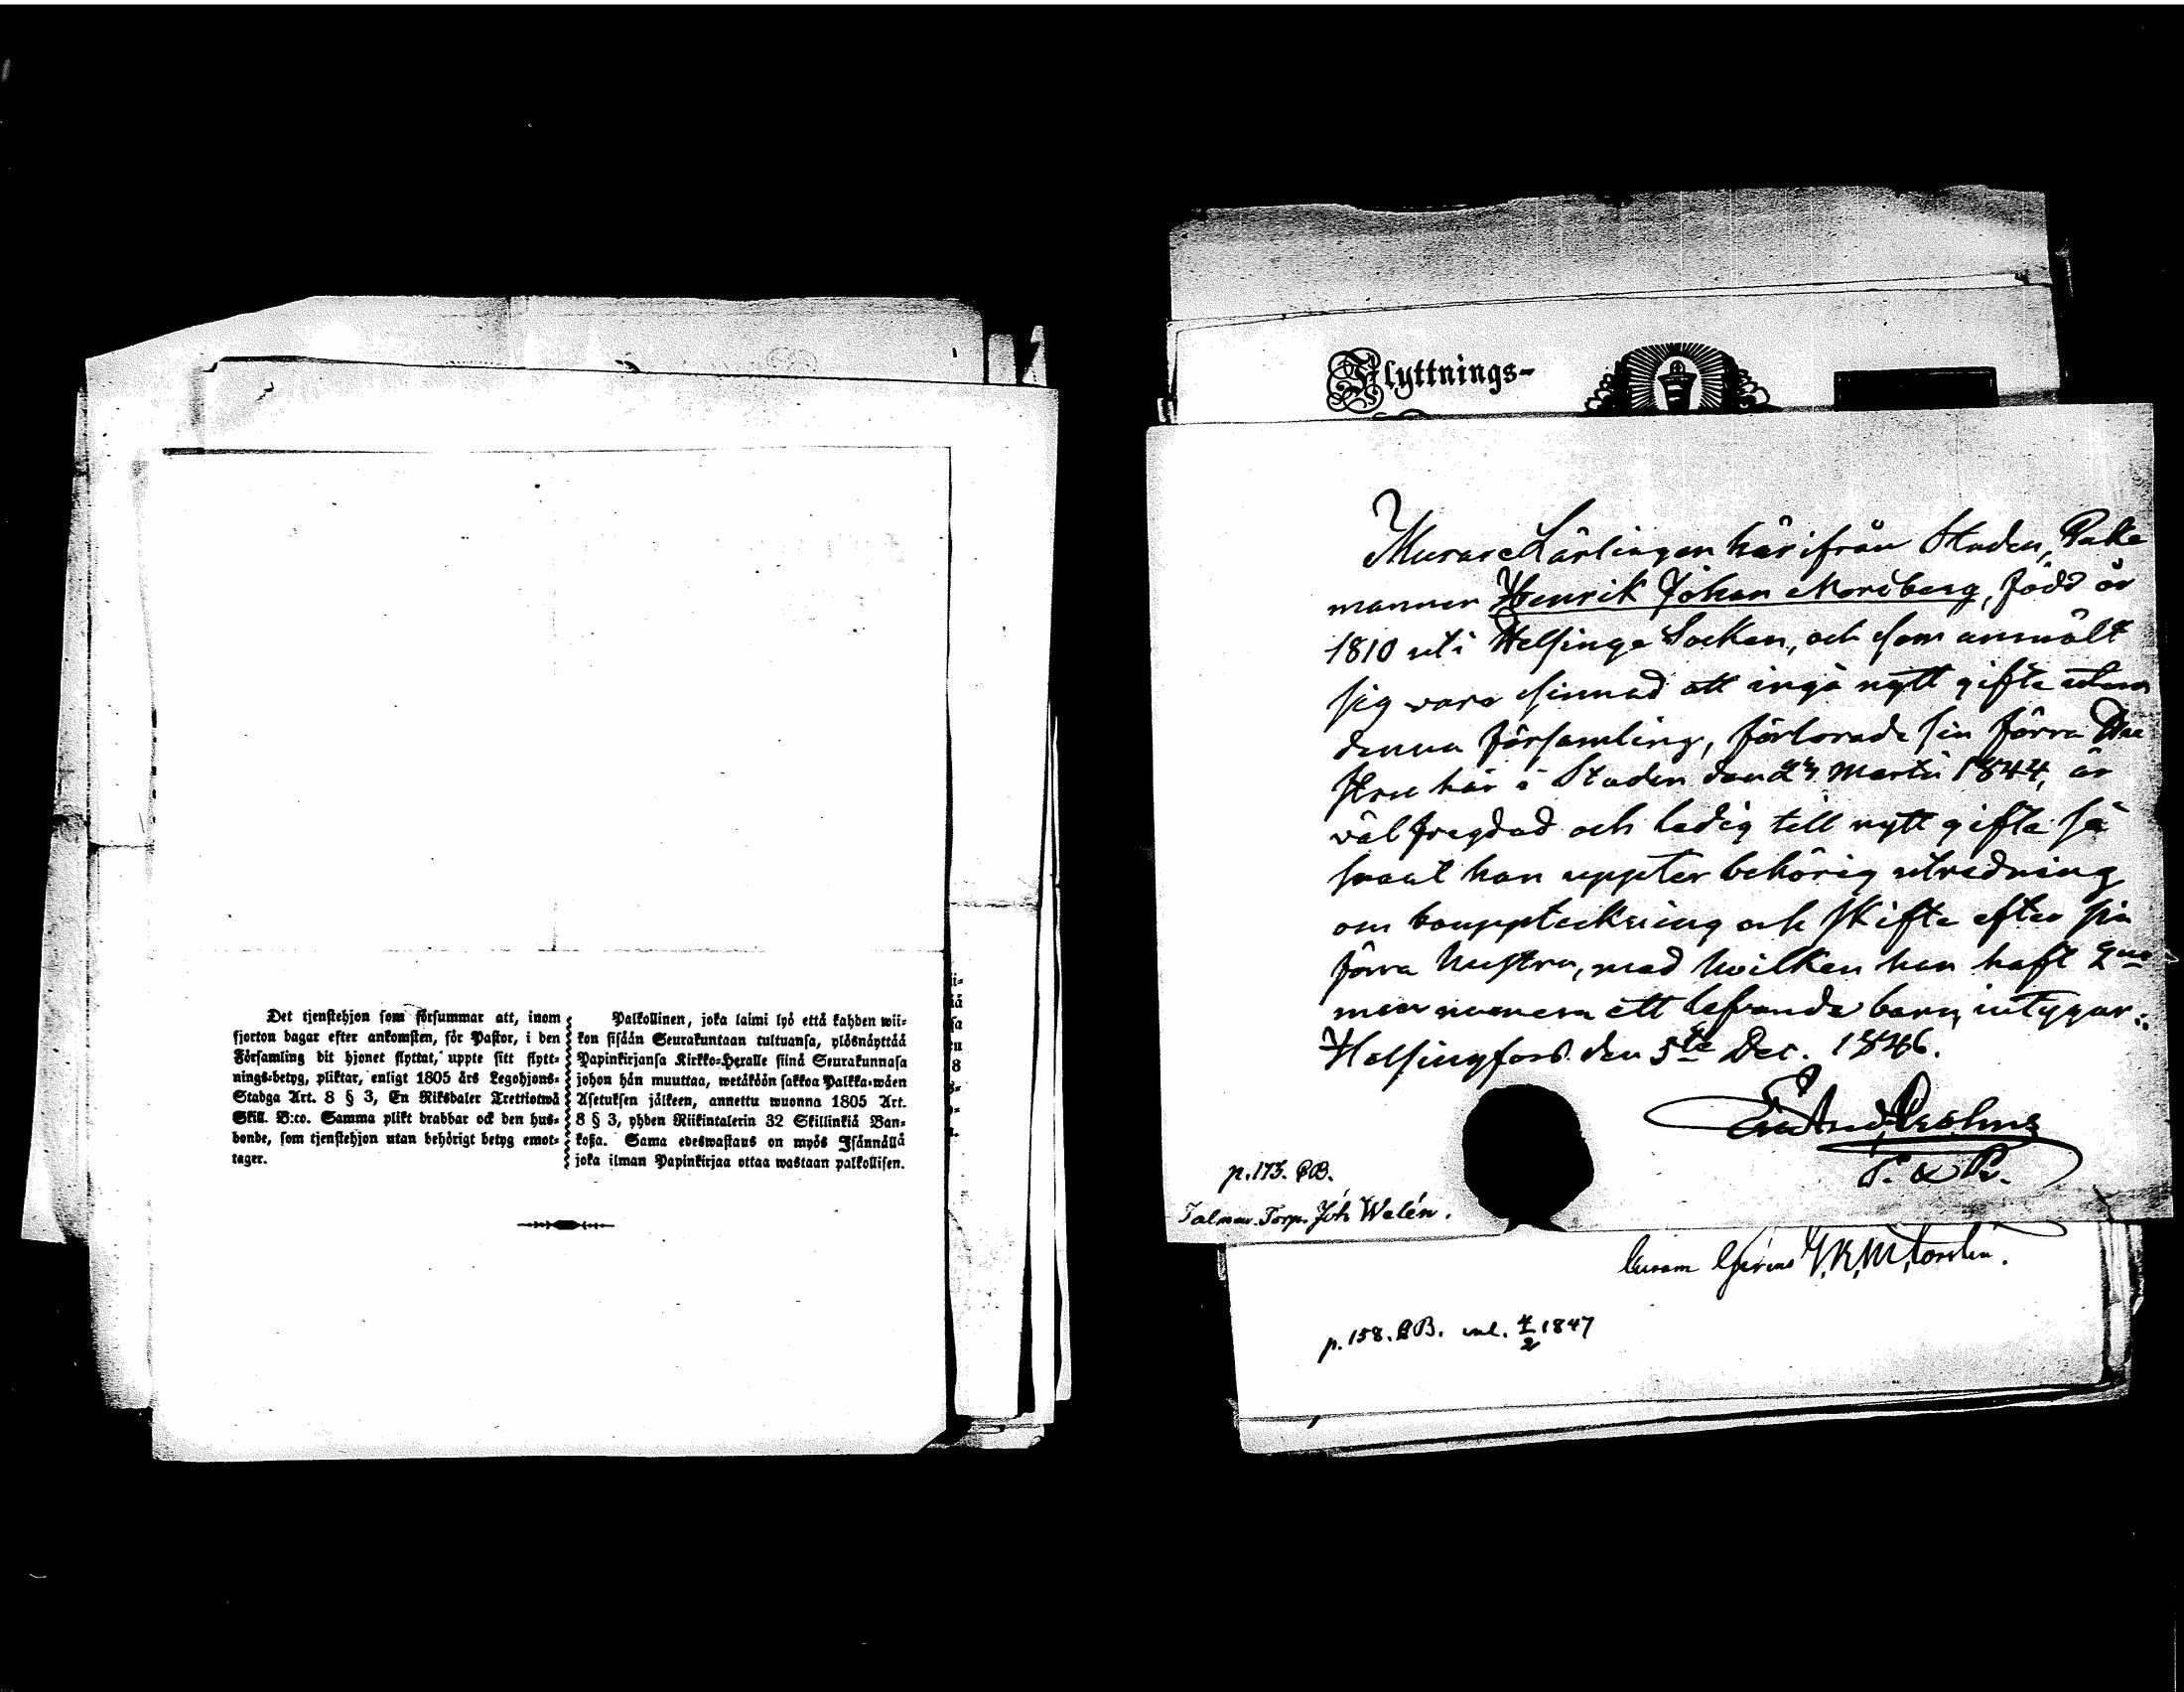 Det tjenstehjon som försummar att, inom
fjorton dagar efter ankomsten, för Pastor, i den
Församling dit hjonet flyttat, uppte sitt flytt-
nings-betyg, pliktar, enligt 1805 års Legohjons-
Stadga Art. 8 § 3, En Riksdaler Trettiotwå
Skill. B:co. Samma plikt drabbar ock den hus-
bonde, som tjenstehjon utan behörigt betyg emot-
tager.
Palkollinen, joka laimi lyö että kahden wii-
kon sisään Seurakuntaan tultuansa, ylösnäyttää
Papinkirjansa Kirkko-Herralle siinä Seurakunnasa
johon hän muuttaa, wetäköön sakkoa Palkka-wäen
Asetuksen jälkeen, annettu wuonna 1805 Art.
8 § 3, yhden Riikintalerin 32 Skillinkiä Ban-
koßa. Sama edeswastaus on myös Isännällä
joka ilman Papinkirjaa ottaa wastaan palkollisen.
Flyttnings-
Murare Lärlingen härifrån Staden,
mannen Henrik Johan Noriberg, född år
1810 uti Helsinge Socken, och som anmält
sig vara sinnad att ingå nytt gifte utom
denna församling, förlorade sin förra Hu
stru här i Staden den Martii 1844, är
välfregdad och ledig till nytt gifte så
snart han uppter behörig utredning
om bouppteckning och skifte efter sin
förra Hustru, med hvilken han haft
men numera ett lefvande barn, intygar:
Helsingfors den 5te Dec. 1846.
p. 173. CB.
Joh Walén.
p. 158. CB. inl. 4/2 1847